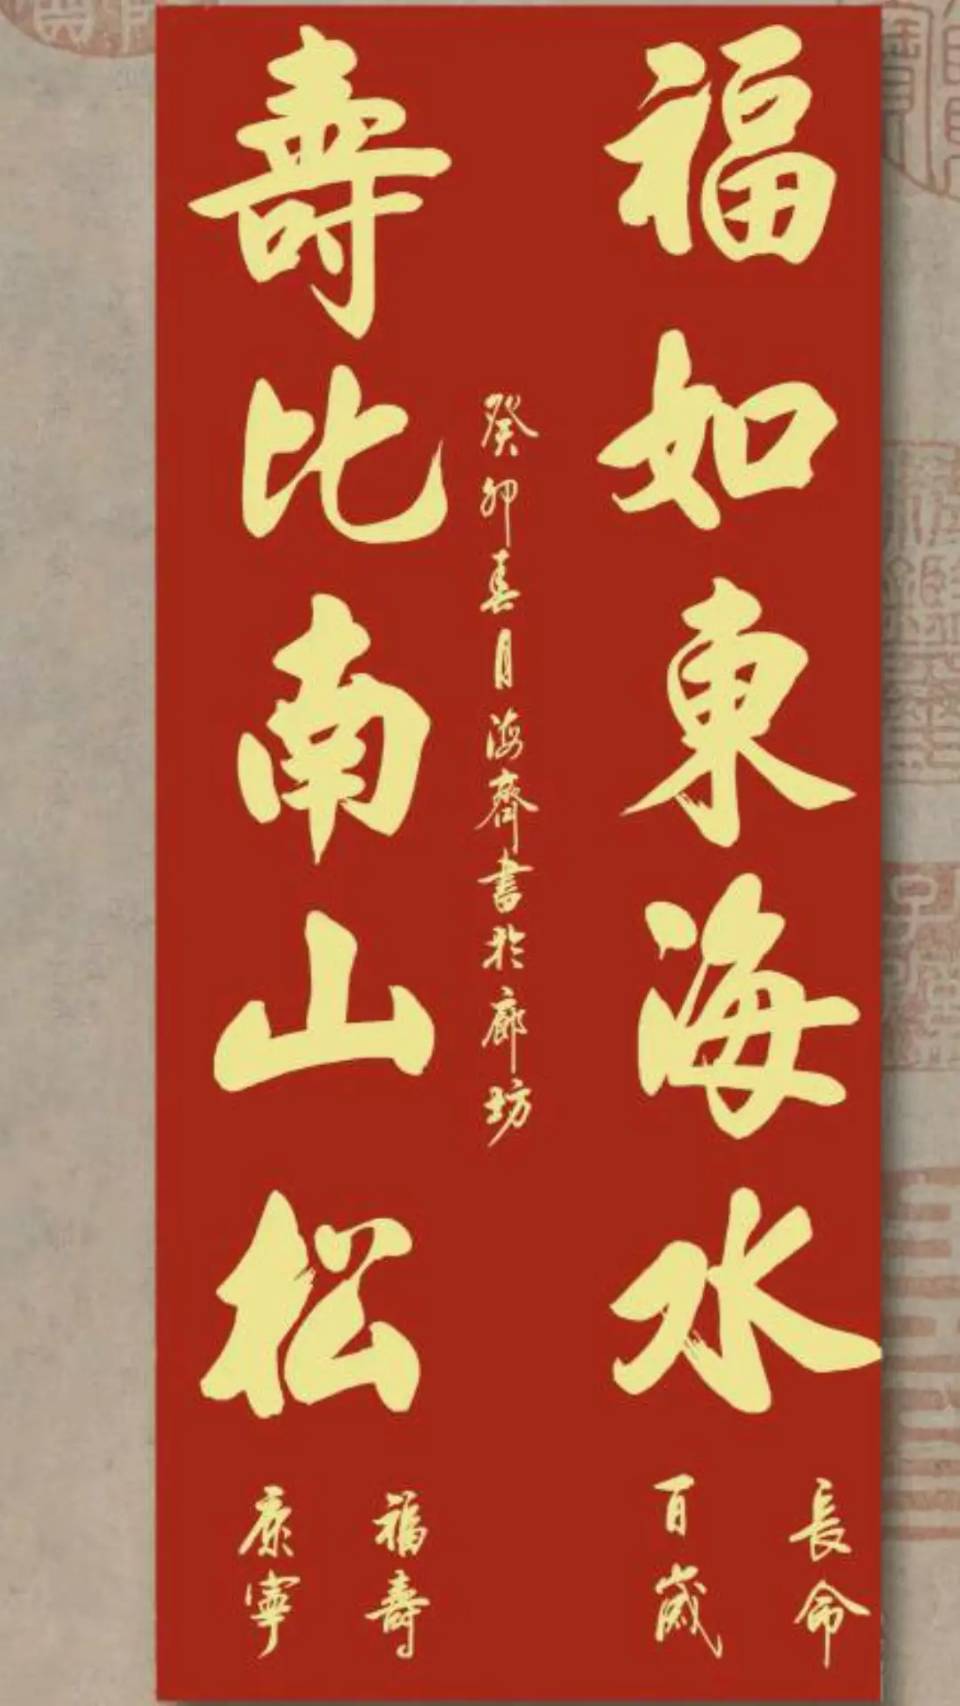 福如東海水
癸卯春月海齋書於廊坊
壽比南山松
長命
百歲
福壽
康寧